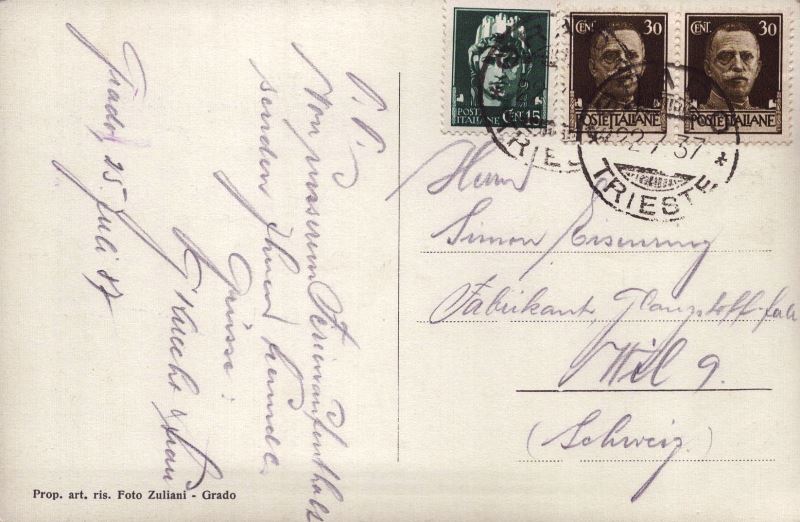 Grado, 25. Juli 37
P. P.
Von unserem Ferienaufenthalt
senden Ihnen freundl.
Grüsse:
Knecht & Frau
CENT. 15
POSTE ITALIANE
CENT. 30
POSTE ITALIANE
CENT. 30
POSTE ITALIANE
TRIESTE
TRIESTE
Herrn
Simon
Fabrikant,
Wil
(Schweiz)
Prop. art. ris. Foto Zuliani - Grado